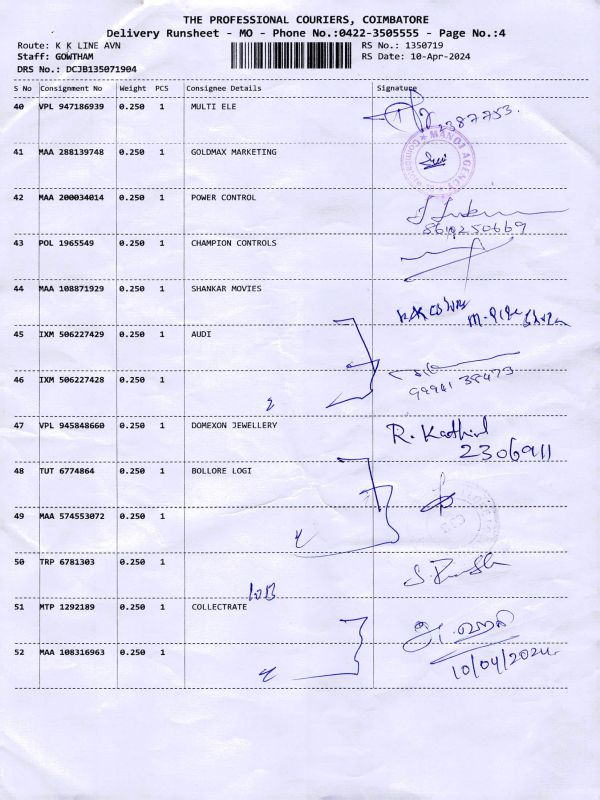 THE PROFESSIONAL COURIERS, COIMBATORE
Delivery Runsheet - MO - Phone No.:0422-3505555 - Page No.:4
Route: K K LINE AVN
RS No.: 1350719
Staff: GOWTHAM
RS Date: 10-Apr-2024
DRS No.: DCJB135071904
S No Consignment No Weight PCS Consignee Details Signature
40 VPL 947186939 0.250 1 MULTI ELE
2387753.
41 MAA 288139748 0.250 1 GOLDMAX MARKETING
MANOJ AGENCY
42 MAA 200034014 0.250 1 POWER CONTROL
8610250669
43 POL 1965549 0.250 1 CHAMPION CONTROLS
44 MAA 108871929 0.250 1 SHANKAR MOVIES
45 IXM 506227429 0.250 1 AUDI
46 IXM 506227428 0.250 1
2
47 VPL 945848660 0.250 1 DOMEXON JEWELLERY
R. Kathirl
2306911
48 TUT 6774864 0.250 1 BOLLORE LOGI
49 MAA 574553072 0.250 1
2
50 TRP 6781303 0.250 1
IOB
51 MTP 1292189 0.250 1 COLLECTRATE
52 MAA 108316963 0.250 1
2
10/04/2024